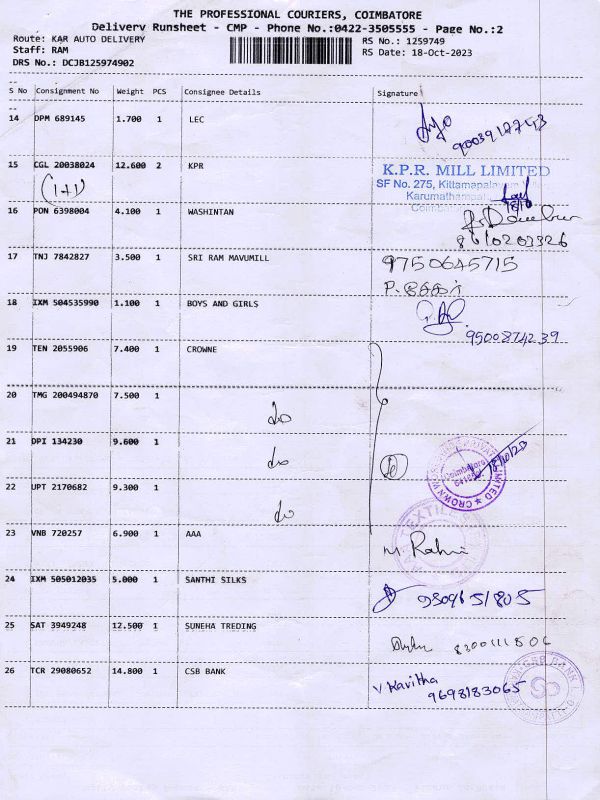 THE PROFESSIONAL COURIERS, COIMBATORE
Delivery Runsheet - CMP - Phone No.:0422-3505555 - Page No.:2
Route: KAR AUTO DELIVERY
Staff: RAM
DRS No.: DCJB125974902
RS No.: 1259749
RS Date: 18-Oct-2023
S No Consignment No Weight PCS Consignee Details Signature
14 DPM 689145 1.700 1 LEC
15 CGL 20038024 12.600 2 KPR
(1+1)
K.P.R. MILL LIMITED
SF No. 275, Kittamapalayam
16 PON 6398004 4.100 1 WASHINTAN
17 TNJ 7842827 3.500 1 SRI RAM MAVUMILL 9750645715
P. சேகர்
18 IXM 504535990 1.100 1 BOYS AND GIRLS
9500874239
19 TEN 2055906 7.400 1 CROWNE
20 TMG 200494870 7.500 1
do
21 DPI 134230 9.600 1
do
18/10/23
22 UPT 2170682 9.300 1
do
23 VNB 720257 6.900 1 AAA
24 IXM 505012035 5.000 1 SANTHI SILKS
25 SAT 3949248 12.500 1 SUNEHA TREDING
26 TCR 29080652 14.800 1 CSB BANK
V Kavitha
9698183065